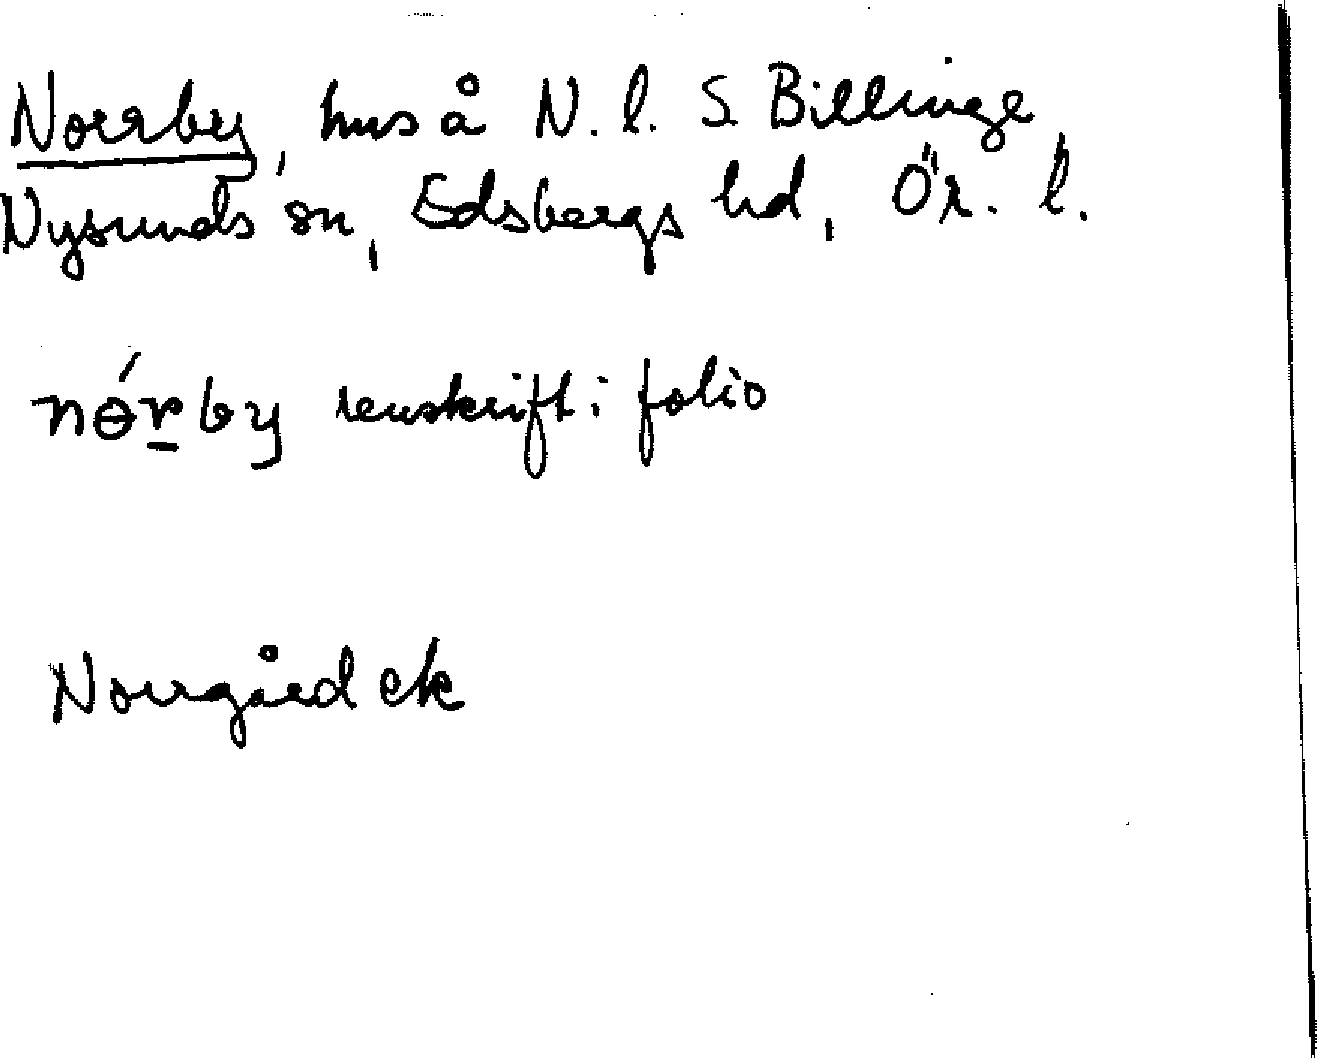 Norrby, hus å N. l. S. Billinge,
Nysunds sn, Edsbergs hd, Ör. l.
nǿr̲by renskrift i folio
Norrgård ek